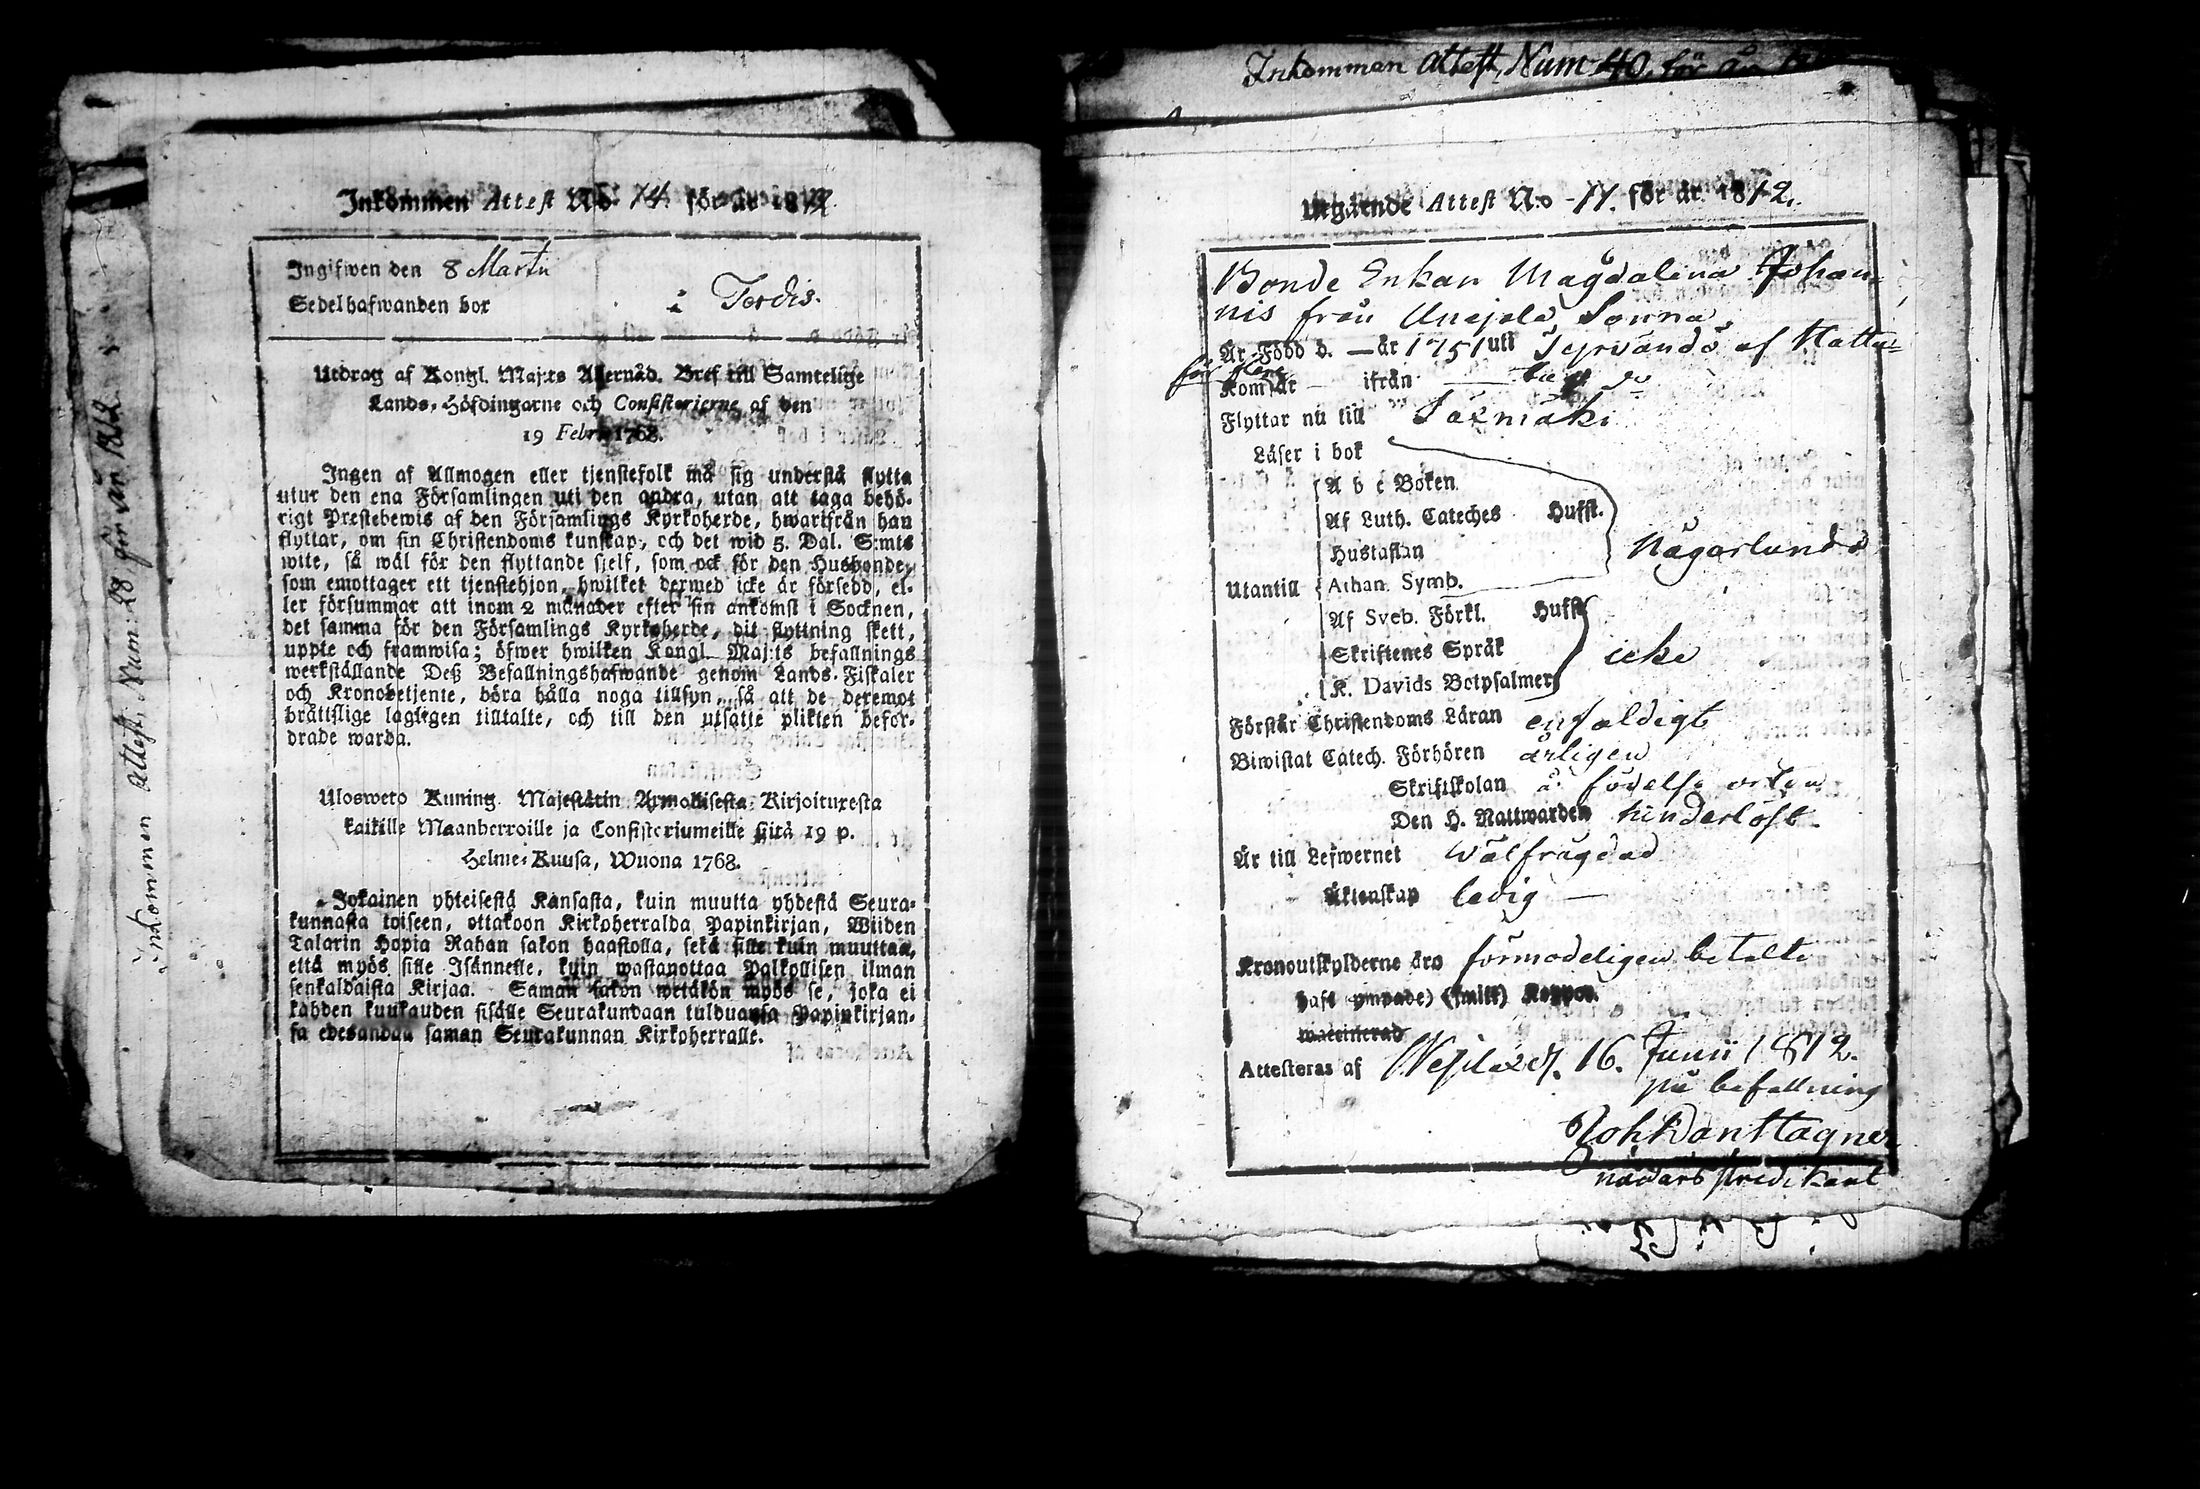 Inkommen attest. Num: 28 för år 1812
Inkommen Attest No 14. för år 1812.
Ingifwen den 8 Martii
Sedelhafwanden bor å Tordis.
Utdrag af Kongl. Maj:ts Allernåd. Bref till Samtelige
Lands-Höfdingarne och Consistorierne af den
19 Febr. 1768.
Ingen af Allmogen eller tjenstefolk må sig understå flytta
utur den ena Församlingen uti den andra, utan att taga behö-
rigt Prestebewis af den Församlings Kyrkoherde, hwarifrån han
flyttar, om sin Christendoms kunskap, och det wid 5. Dal. S:mts
wite, så wäl för den flyttande sjelf, som ock för den Husbonde,
som emottager ett tjenstehjon, hwilket dermed icke är försedd, el-
ler försummar att inom 2 månader efter sin ankomst i Socknen,
det samma för den Församlings Kyrkoherde, dit flyttning skett,
uppte och framwisa; öfwer hwilken Kongl. Maj:ts befallnings
werkställande Deß Befallningshafwande genom Lands-Fiskaler
och Kronobetjente, böra hålla noga tillsyn, så att de deremot
bråttslige lagligen tilltalte, och till den utsatte plikten befor-
drade warda.
Ulosweto Kuning. Majestätin Armollisesta Kirjoituxesta
kaikille Maanherroille ja Consistoriumeille siitä 19 p.
Helme-Kuusa, Wuona 1768.
Jokainen yhteisestä Kansasta, kuin muutta yhdestä Seura-
kunnasta toiseen, ottakoon Kirkoherralda Papinkirjan, Wiiden
Talarin Hopia Rahan sakon haastolla, sekä sille kuin muuttaa,
että myös sille Isännelle, kuin wastanottaa Palkollisen ilman
senkaldaista Kirjaa. Saman sakon wetäkön myös se, joka ei
kahden kuukauden sisälle Seurakundaan tulduansa Papinkirjan-
sa edesandaa saman Seurakunnan Kirkoherralle.
Inkommen attest, Num 40. för år
Utgående Attest No 11. för år 1812.
Bonde Enkan Magdalena Johan-
nis från Anajala Sonna
Är Född d. — år 1751 uti
för flere
Kom år — ifrån
Flyttar nu till Säxmäki
Läser i bok
A b c Boken
Af Luth. Cateches Hufst.
Hustaflan någorlunda
Utantill Athan. Symb.
Af Sveb. Förkl. Hufst
Skriftenes Språk icke
K. Davids Botpsalmer
Förstår Christendoms Läran enfaldigt
Biwistat Catech. Förhören årligen
Skriftskolan å födelse orten
Den H. Nattwarden hinderlöst.
Är till Lefwernet wälfrägdad
Äktenskap ledig —
Kronoutskylderne äro förmodeligen betalte
haft (ympade) (smitt) Koppor.
waccinerad
Attesteras af Wesilax d. 16. Junii 1812.
på befallning
nådårs predikant